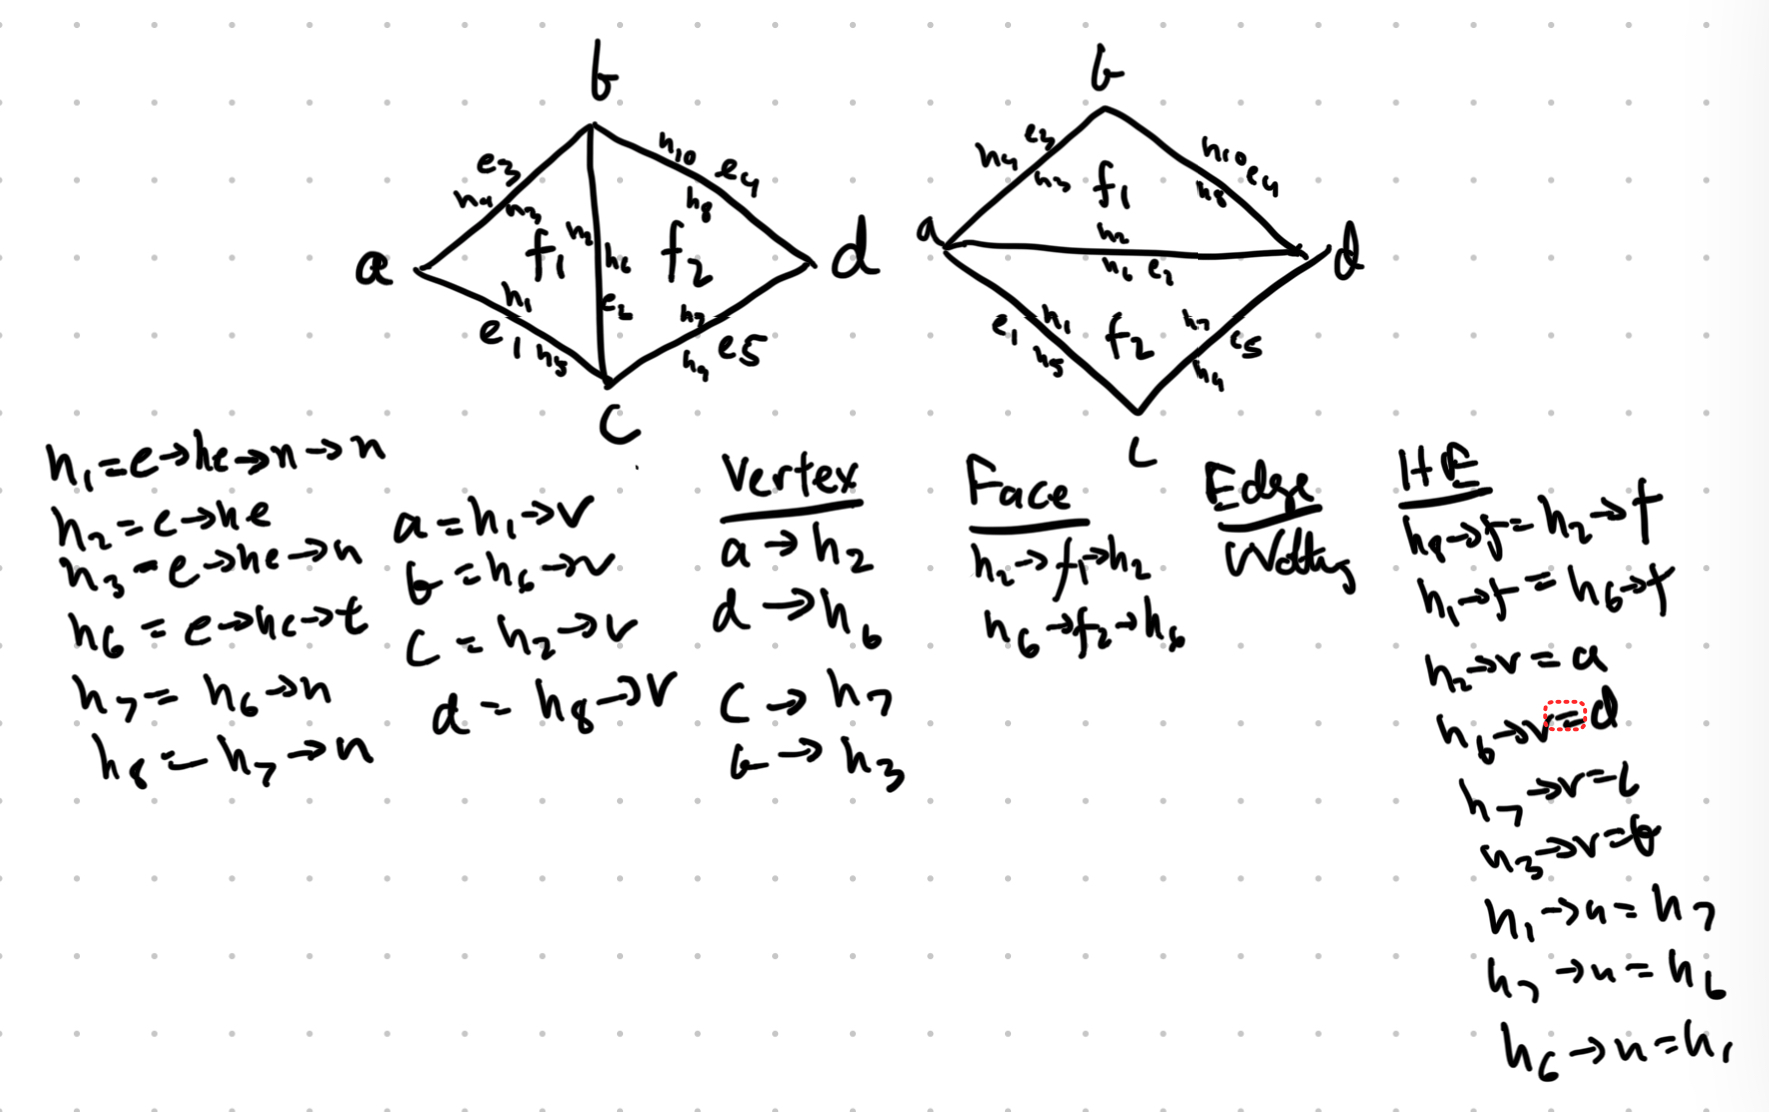 b
h10
e4
e3
h4
h3
h8
a
f1
h2
h6
f2
d
h1
e2
h7
e1
h5
h9
e5
c
b
e3
h4
h3
f1
h10
e4
h8
a
h2
h6 e2
d
e1
h1
h5
f2
h7
e5
h9
c
h1 = e→he→n→n
h2 = e→he
h3 = e→he→n
h6 = e→he→t
h7 = h6→n
h8 = h7→n
a = h1→v
b = h6→v
c = h2→v
d = h8→v
Vertex
a→h2
d→h6
c→h7
b→h3
Face
h2→f1→h2
h6→f2→h6
Edge
HE
h8→f = h2→f
h1→f = h6→f
h2→v = a
h6→v = d
h7→v = c
h3→v = b
h1→n = h7
h7→n = h6
h6→n = h1